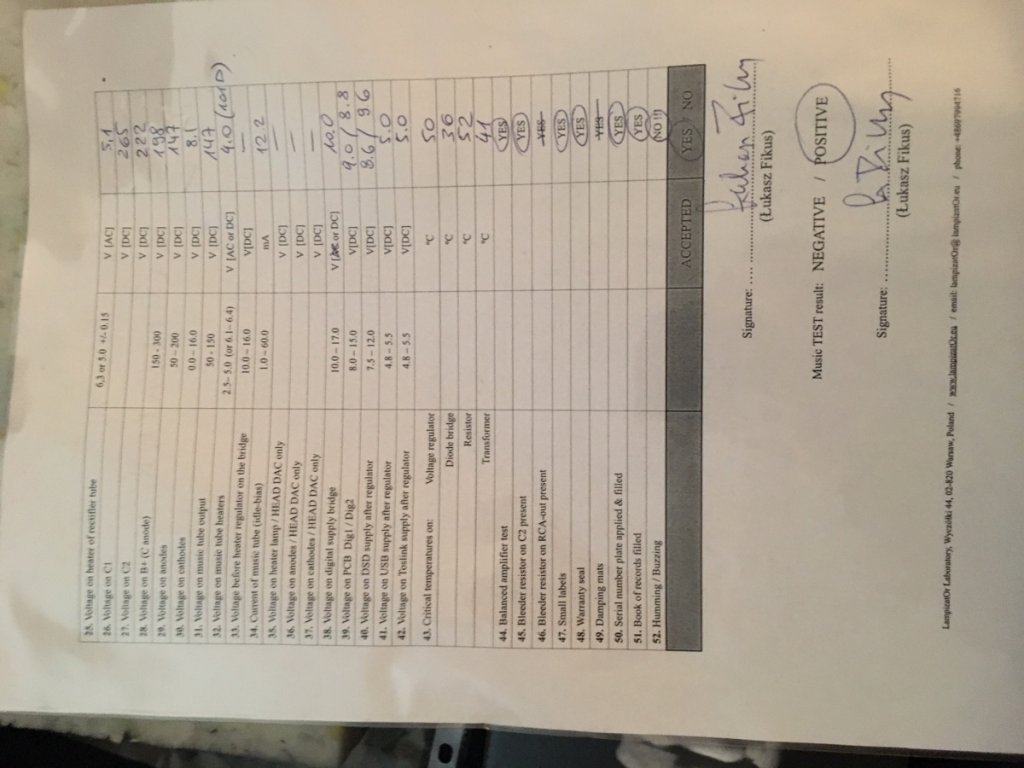 25. Voltage on heater of rectifier tube 6,3 or 5.0 +/- 0.15 V [AC] 5,1
26. Voltage on C1 V [DC] 265
27. Voltage on C2 V [DC] 222
28. Voltage on B+ (C anode) 150 - 300 V [DC] 198
29. Voltage on anodes 50 – 200 V [DC] 147
30. Voltage on cathodes 0.0 – 16.0 V [DC] 8.1
31. Voltage on music tube output 50 - 150 V [DC] 147
32. Voltage on music tube heaters 2.5– 5.0 (or 6.1– 6.4) V [AC or DC] 4.0 (101D)
33. Voltage before heater regulator on the bridge 10.0 – 16.0 V[DC] —
34. Current of music tube (idle-bias) 1.0 – 60.0 mA 12.2
35. Voltage on heater lamp / HEAD DAC only V [DC] —
36. Voltage on anodes / HEAD DAC only V [DC] —
37. Voltage on cathodes / HEAD DAC only V [DC] —
38. Voltage on digital supply bridge 10.0 – 17.0 V [AC or DC] 10.0
39. Voltage on PCB Dig1 / Dig2 8.0 – 15.0 V[DC] 9.0 / 8.8
40. Voltage on DSD supply after regulator 7.5 – 12.0 V[DC] 8.6 / 9.6
41. Voltage on USB supply after regulator 4.8 – 5.5 V[DC] 5.0
42. Voltage on Toslink supply after regulator 4.8 – 5.5 V[DC] 5.0
43. Critical temperatures on: Voltage regulator °C 50
Diode bridge °C 36
Resistor °C 52
Transformer °C 41
44. Balanced amplifier test YES
45. Bleeder resistor on C2 present YES
46. Bleeder resistor on RCA-out present YES
47. Small labels YES
48. Warranty seal YES
49. Damping mats YES
50. Serial number plate applied & filled YES
51. Book of records filled YES
52. Humming / Buzzing NO !!!
ACCEPTED YES / NO
Signature: ....
(Łukasz Fikus)
Music TEST result: NEGATIVE / POSITIVE
Signature:
(Łukasz Fikus)
LampizatOr Laboratory, Wyczółki 44, 02-820 Warsaw, Poland / www.lampizatOr.eu / email: lampizatOr@ lampizatOr.eu / phone: +48697994716